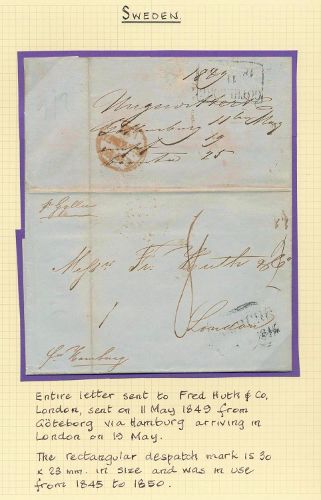 SWEDEN.
1849
11th May
19
25
Messrs Fr. Huth & Co
London
1
pr Hamburg
Entire letter sent to Fred Huth & Co,
London, sent on 11 May 1849 from
Göteborg via Hamburg arriving in
London on 19 May.
The rectangular despatch mark is 30
x 23 mm. in size and was in use
from 1845 to 1850.